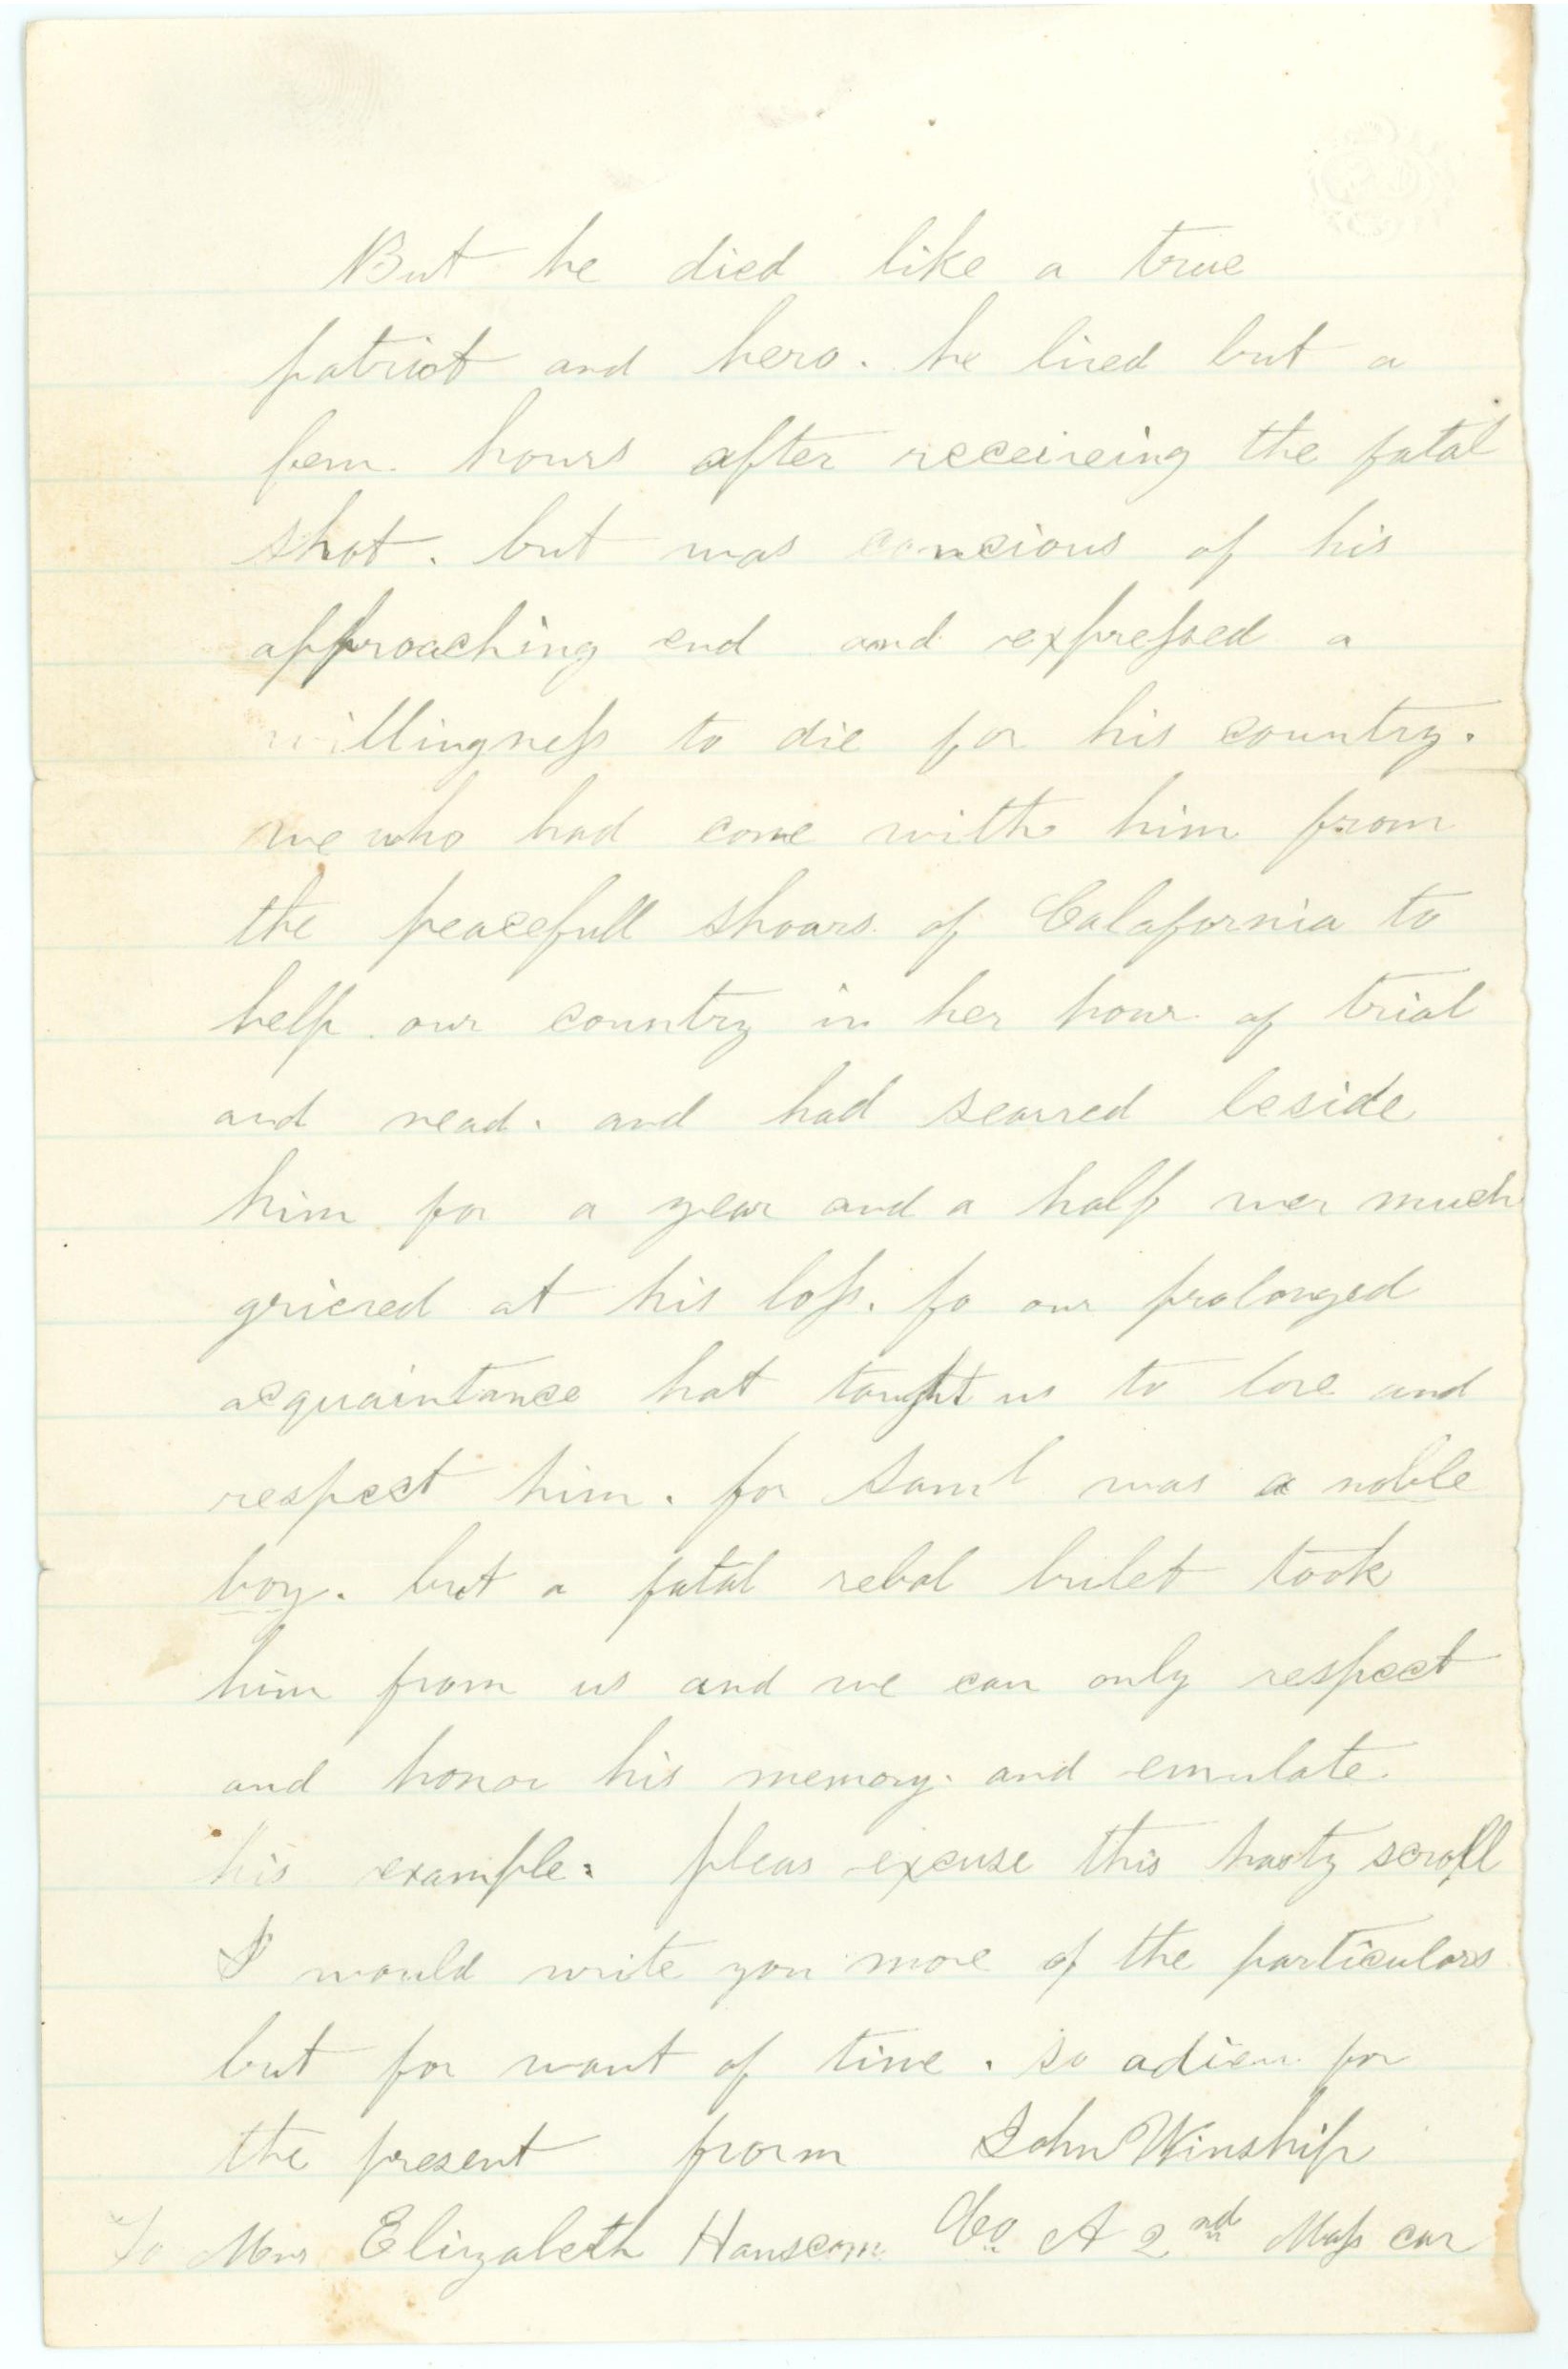 But he died like a true
patriot and hero. he lived but a
few hours after receiveing the fatal
shot. but was concious of his
approaching end and expressed a
willingness to die for his country.
we who had come with him from
the peacefull shoars of Calafornia to
help our country in her hour of trial
and nead. and had searved beside
him for a year and a half wer much
grieved at his loss. fo our prolonged
acquaintance hat tought us to love and
respect him. for Saml was a noble
boy. but a fatal rebal bulet took
him from us and we can only respect
and honor his memory. and emulate
his example. pleas excuse this hasty scroll
I would write you more of the particulars
but for want of time. so adieu for
the present from John Winship
To Mrs Elizabeth Hanscom Co A 2nd Mass cav